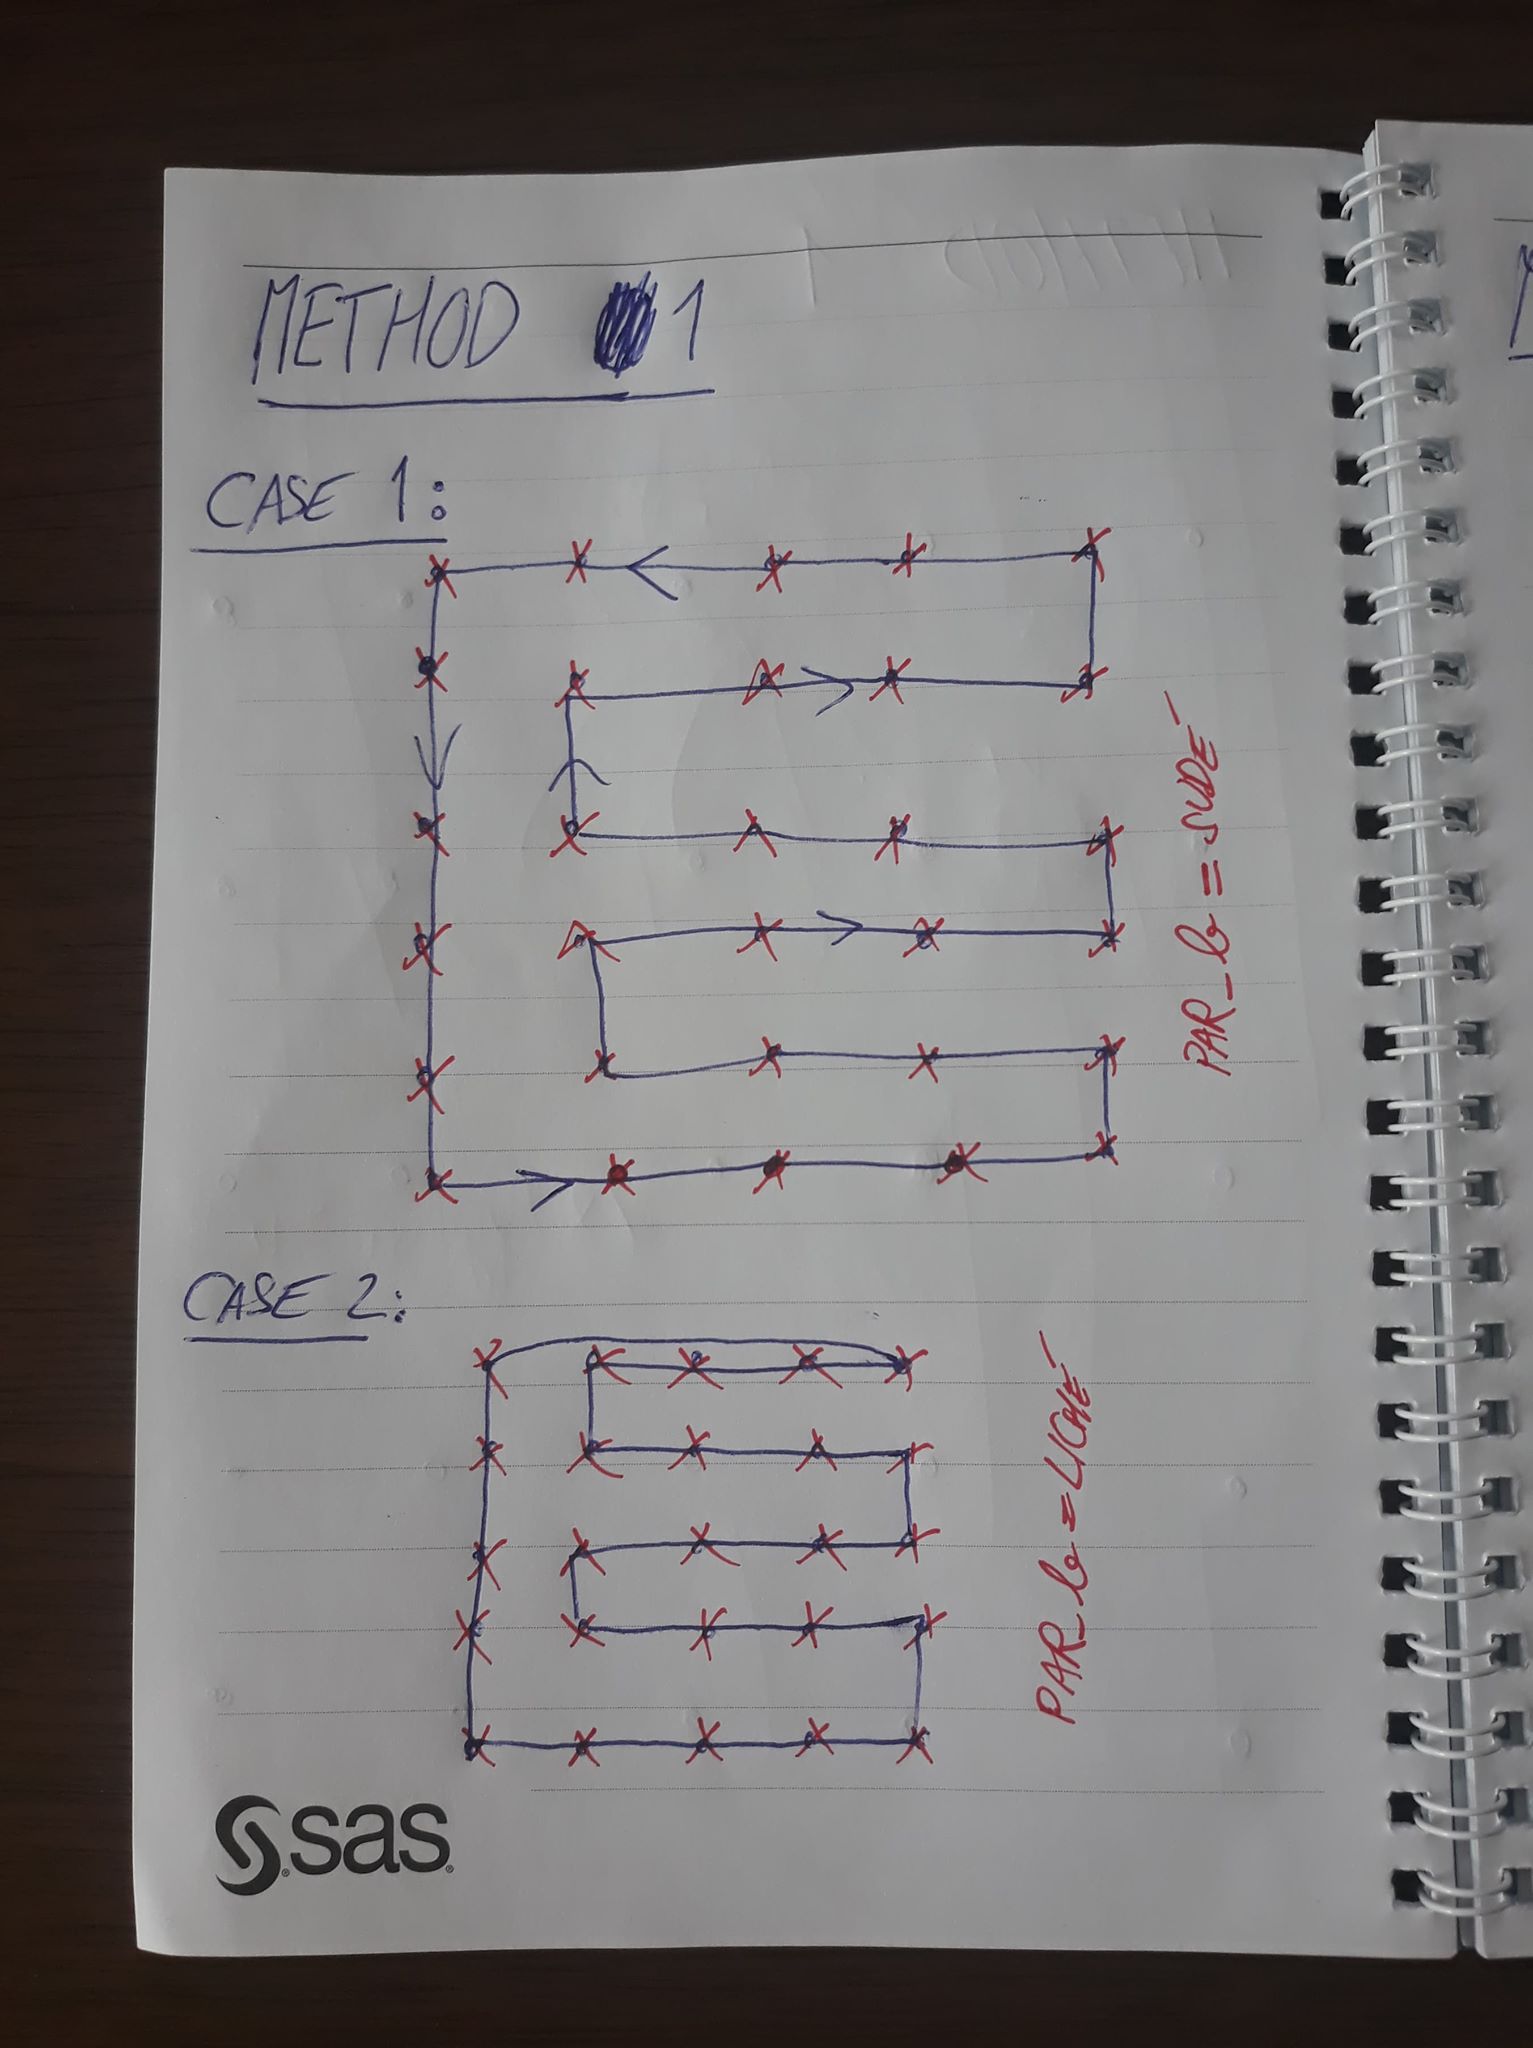 METHOD 1
CASE 1:
PAR_b = SUDÉ
CASE 2:
PAR_b = LICHÉ
sas